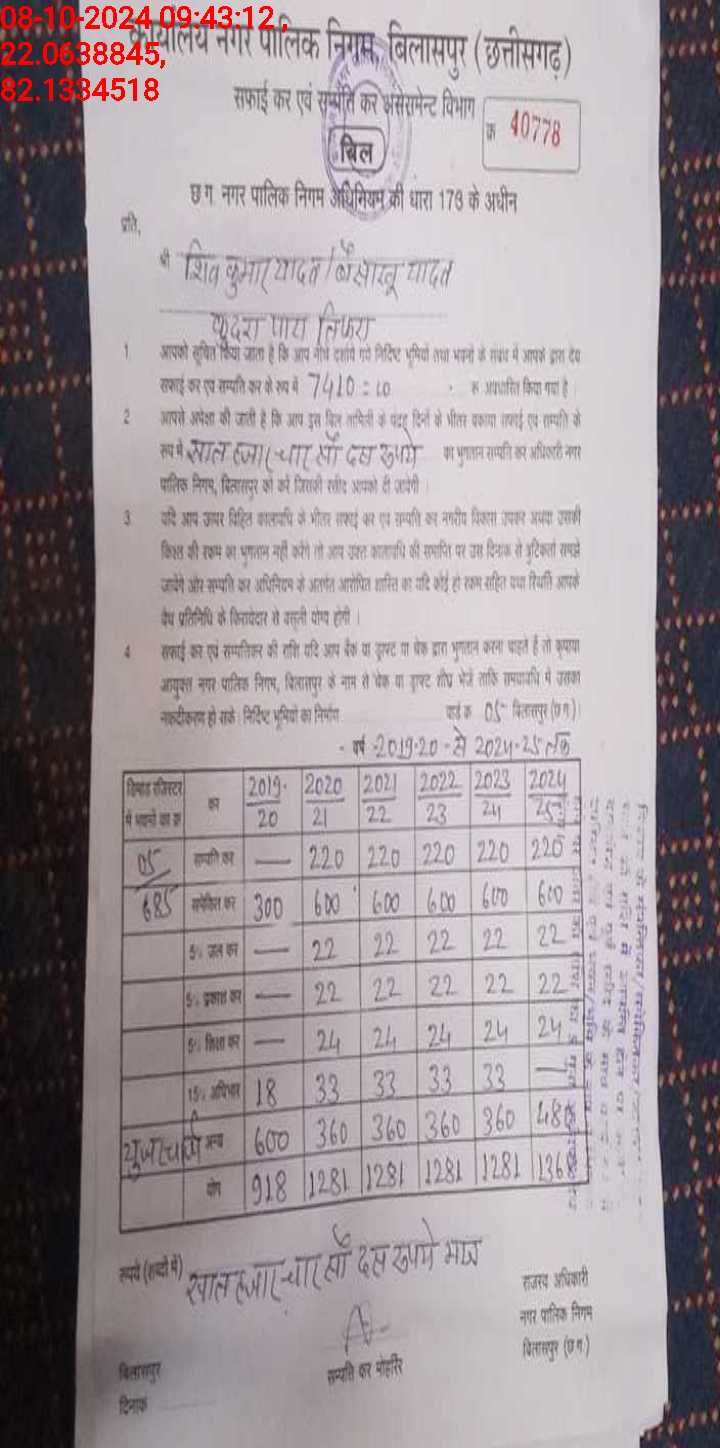 08-10-2024 09:43:12,
22.0638845,
82.1334518
कार्यालय नगर पालिक निगम, बिलासपुर (छत्तीसगढ़)
सफाई कर एवं सम्पत्ति कर असेसमेन्ट विभाग
क्र 40778
बिल
छ.ग. नगर पालिक निगम अधिनियम की धारा 173 के अधीन
प्रति,
श्री शिव कुमार यादव / बैसाखू यादव
कुदरा पारा तिफरा
1. आपको सूचित किया जाता है कि आप नीचे दर्शाये गये निर्दिष्ट भूमियों तथा भवनों के संबंध में आपके द्वारा देय
सफाई कर एवं सम्पत्ति कर के रूप में 7410=00 रू. अवधारित किया गया है।
2. आपसे अपेक्षा की जाती है कि आप इस बिल तामिली के पंद्रह दिनों के भीतर बकाया सफाई एवं सम्पत्ति के
रूप में सात हजार चार सौ दस रूपये का भुगतान सम्पत्ति कर अधिकारी नगर
पालिक निगम, बिलासपुर को करें जिसकी रसीद आपको दी जावेगी।
3. यदि आप ऊपर विहित कालावधि के भीतर सफाई कर एवं सम्पत्ति कर नगरीय विकास उपकर अथवा उसकी
किश्त की रकम का भुगतान नहीं करेंगे तो आप उक्त कालावधि की समाप्ति पर उस दिनांक से त्रुटिकर्ता समझे
जायेंगे और सम्पत्ति कर अधिनियम के अंतर्गत आरोपित शास्ति का यदि कोई हो रकम सहित यथा स्थिति आपके
वैध प्रतिनिधि के किरायेदार से वसूली योग्य होगी।
4. सफाई कर एवं सम्पत्तिकर की राशि यदि आप बैंक या ड्राफ्ट या चेक द्वारा भुगतान करना चाहते हैं तो कृपया
आयुक्त नगर पालिक निगम, बिलासपुर के नाम से चेक या ड्राफ्ट शीघ्र भेजें ताकि समयावधि में उसका
नकदीकरण हो सके। निर्दिष्ट भूमियों का निर्माण वार्ड क्र. 05 बिलासपुर (छ.ग.)
- वर्ष - 2019-20 - से 2024-25 तक
डिमांड रजिस्टर में भवनों का क्र. कर 2019-20 2020 21 2021 22 2022 23 2023 24 2024 25
05 सम्पत्ति कर — 220 220 220 220 220
685 समेकित कर 300 600 600 600 600 600
5% जल कर — 22 22 22 22 22
5% प्रकाश कर — 22 22 22 22 22
5% शिक्षा कर — 24 24 24 24 24
15% अधिभार 18 33 33 33 33 —
अन्य 600 360 360 360 360 480
योग 918 1281 1281 1281 1281 1368
रूपये (शब्दों में) सात हजार चार सौ दस रूपये मात्र
राजस्व अधिकारी
नगर पालिक निगम
बिलासपुर (छ.ग.)
बिलासपुर
सम्पत्ति कर मोहर्रिर
दिनांक